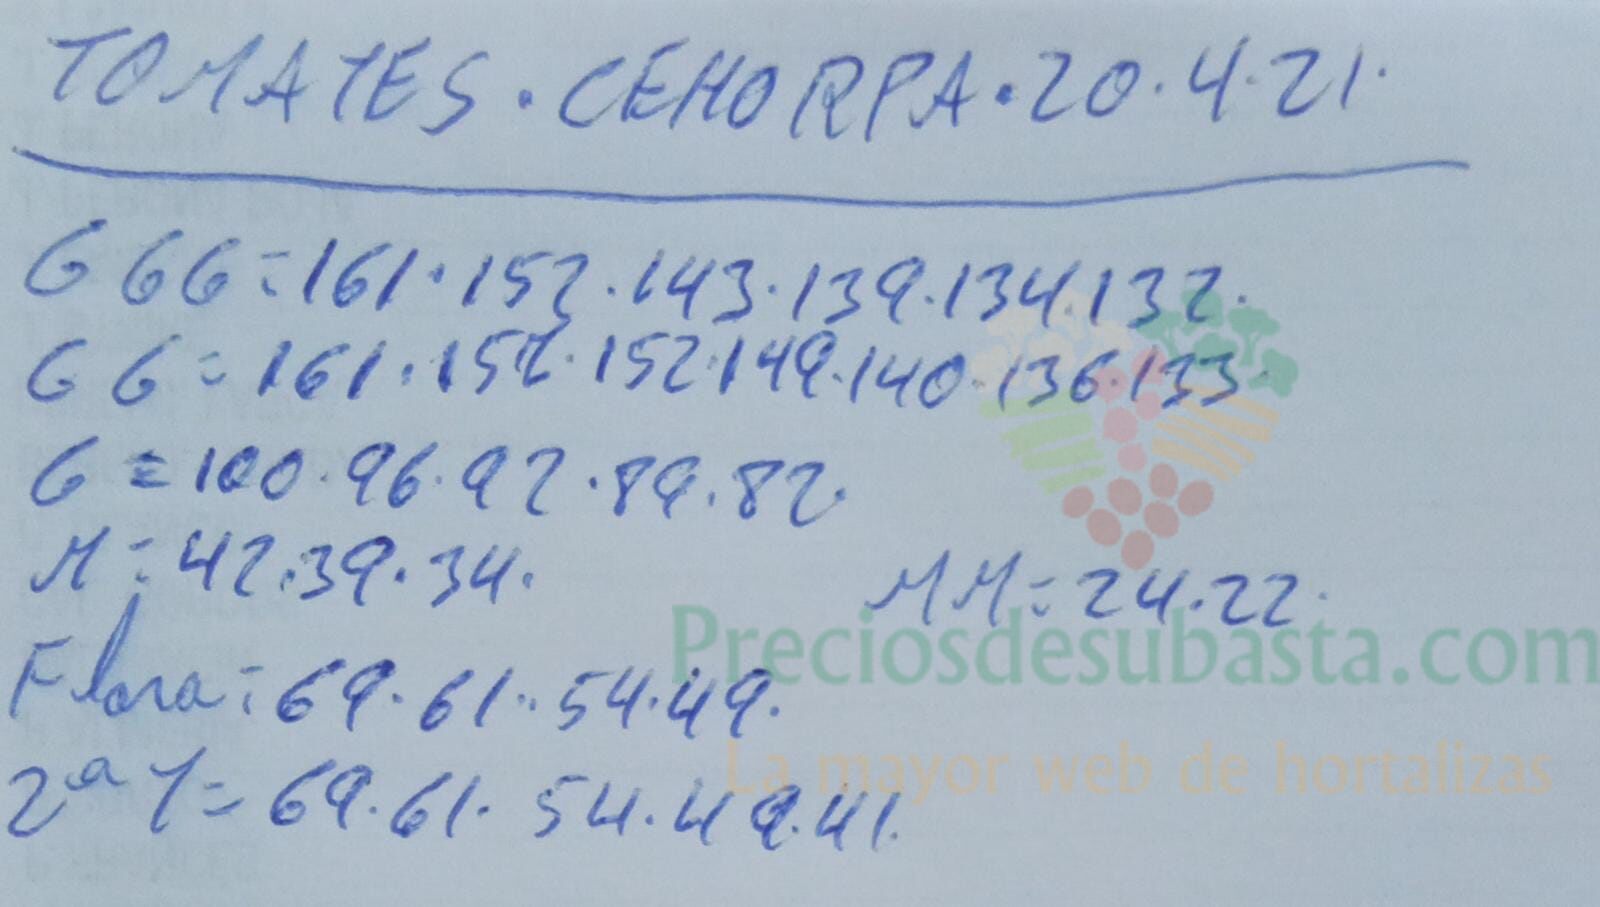 TOMATES · CEHORPA · 20 · 4 · 21 ·
GGG = 161 · 152 · 143 · 139 · 134 · 132 ·
GG = 161 · 152 · 152 · 149 · 140 · 136 · 133 ·
G = 100 · 96 · 92 · 89 · 82 ·
M = 42 · 39 · 34 · MM = 24 · 22 ·
Flora = 69 · 61 · 54 · 49 ·
2ª T = 69 · 61 · 54 · 49 · 41 ·
Preciosdesubasta.com
La mayor web de hortalizas